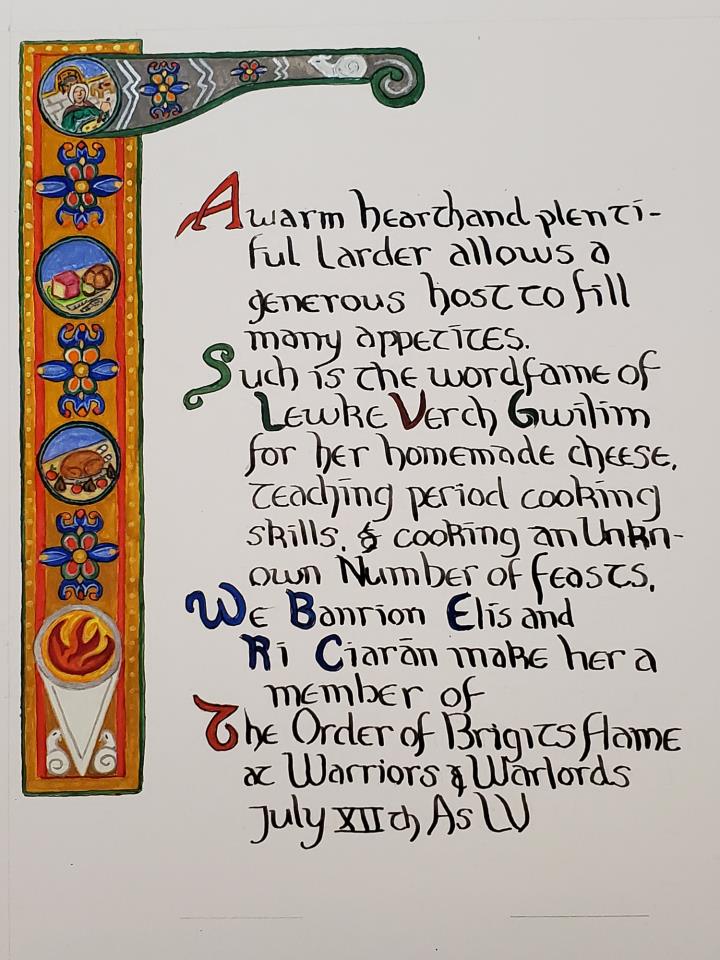 A warm hearthand plenti-
ful larder allows a
generous host to fill
many appetites.
Such is the wordfame of
Lewke Verch Gwilim
for her homemade cheese,
teaching period cooking
skills, & cooking an Unkn-
own Number of feasts,
We Banrion Elis and
Ri Ciarān make her a
member of
The Order of Brigits flame
at Warriors & Warlords
July XII th As LV